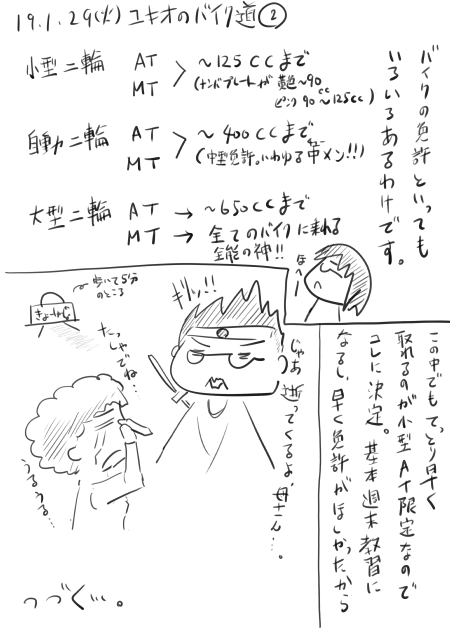 19.1.29(火) ユキオのバイク道②
バイクの免許といっても
いろいろあるわけです。
小型二輪 AT
MT
〜125CCまで
(ナンバープレートが 黄色〜90
ピンク 90〜125cc)
自動二輪 AT
MT
〜400CCまで
(中型免許。いわゆる中メン!!)
大型二輪 AT → 〜650CCまで
MT → 全てのバイクに乗れる
全能の神!!
ほへー
この中でもてっとり早く
取れるのが小型AT限定なので
コレに決定。基本週末教習に
なるし、早く免許がほしかったから
ギリッ!!
じゃあ逝ってくるよ、母さん…。
歩いて5分
のところ
きょーしゅーじょ
たっしゃでね…
うるうる…
つづく…。